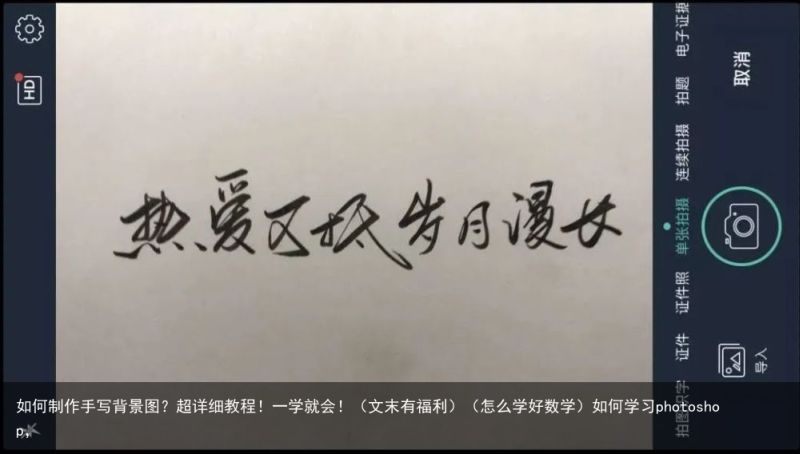 HD
热爱可抵岁月漫长
电子证据
拍题
连续拍摄
单张拍摄
证件照
证件
拍图识字
取消
导入
如何制作手写背景图？超详细教程！一学就会！（文末有福利）（怎么学好数学）如何学习photosho
p,